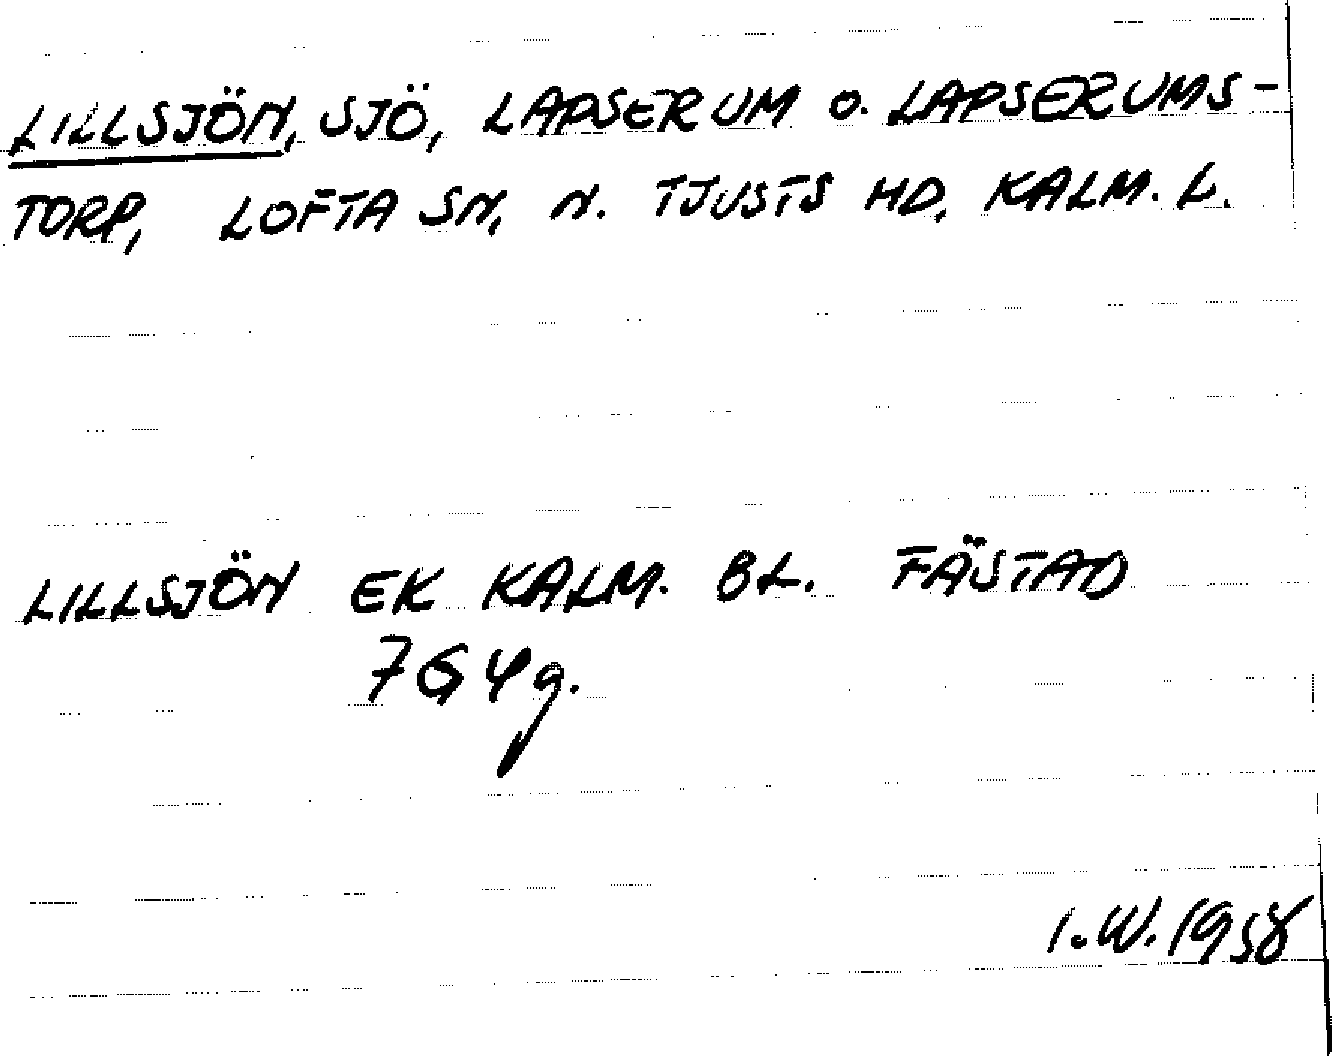 LILLSJÖN, SJÖ, LAPSERUM O. LAPSERUMS-
TORP, LOFTA SN, N. TJUSTS HD, KALM. L.
LILLSJÖN EK KALM. BL. FÄSTAD
7G4g.
I.W. 1958